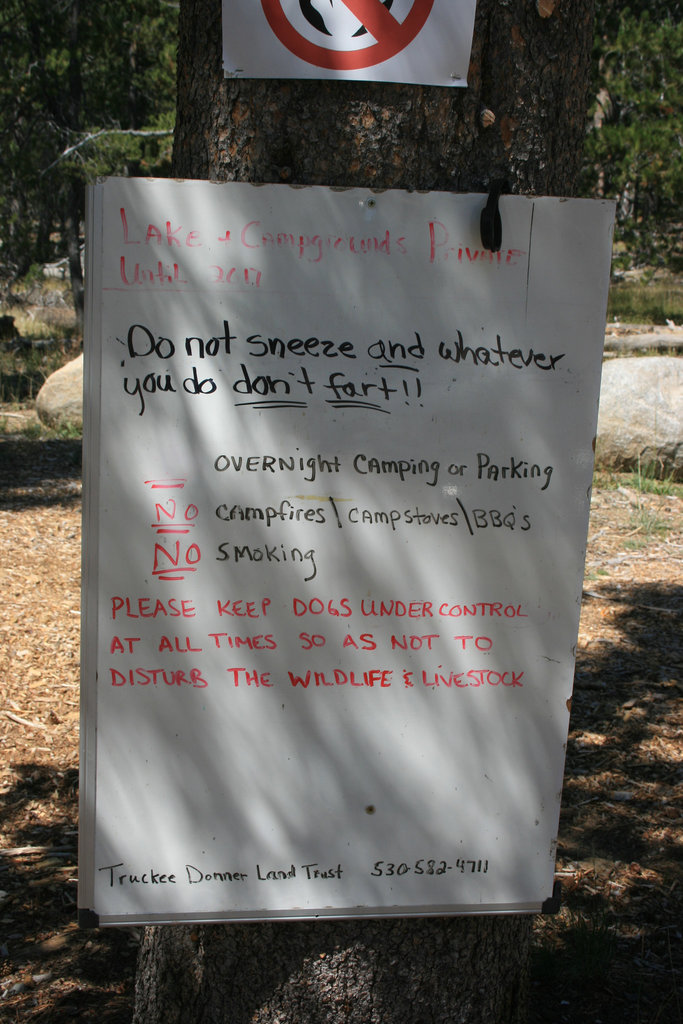 Lake + Campgrounds Private
Until 2017
Do not sneeze and whatever
you do don't fart!!
OVERNight Camping or Parking
NO Campfires\Campstoves\BBQ's
NO Smoking
PLEASE KEEP DOGS UNDER CONTROL
AT ALL TIMES SO AS NOT TO
DISTURB THE WILDLIFE & LIVESTOCK
Truckee Donner Land Trust 530-582-4711